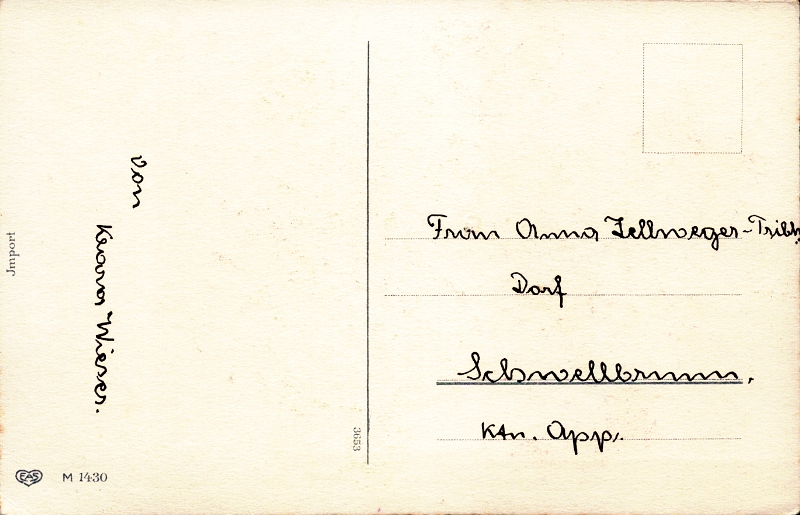 Von
Wieser.
Jmport
EAS
M 1430
3653
Frau Anna Zellweger-
Dorf
Schwellbrunn,
Ktn. App.